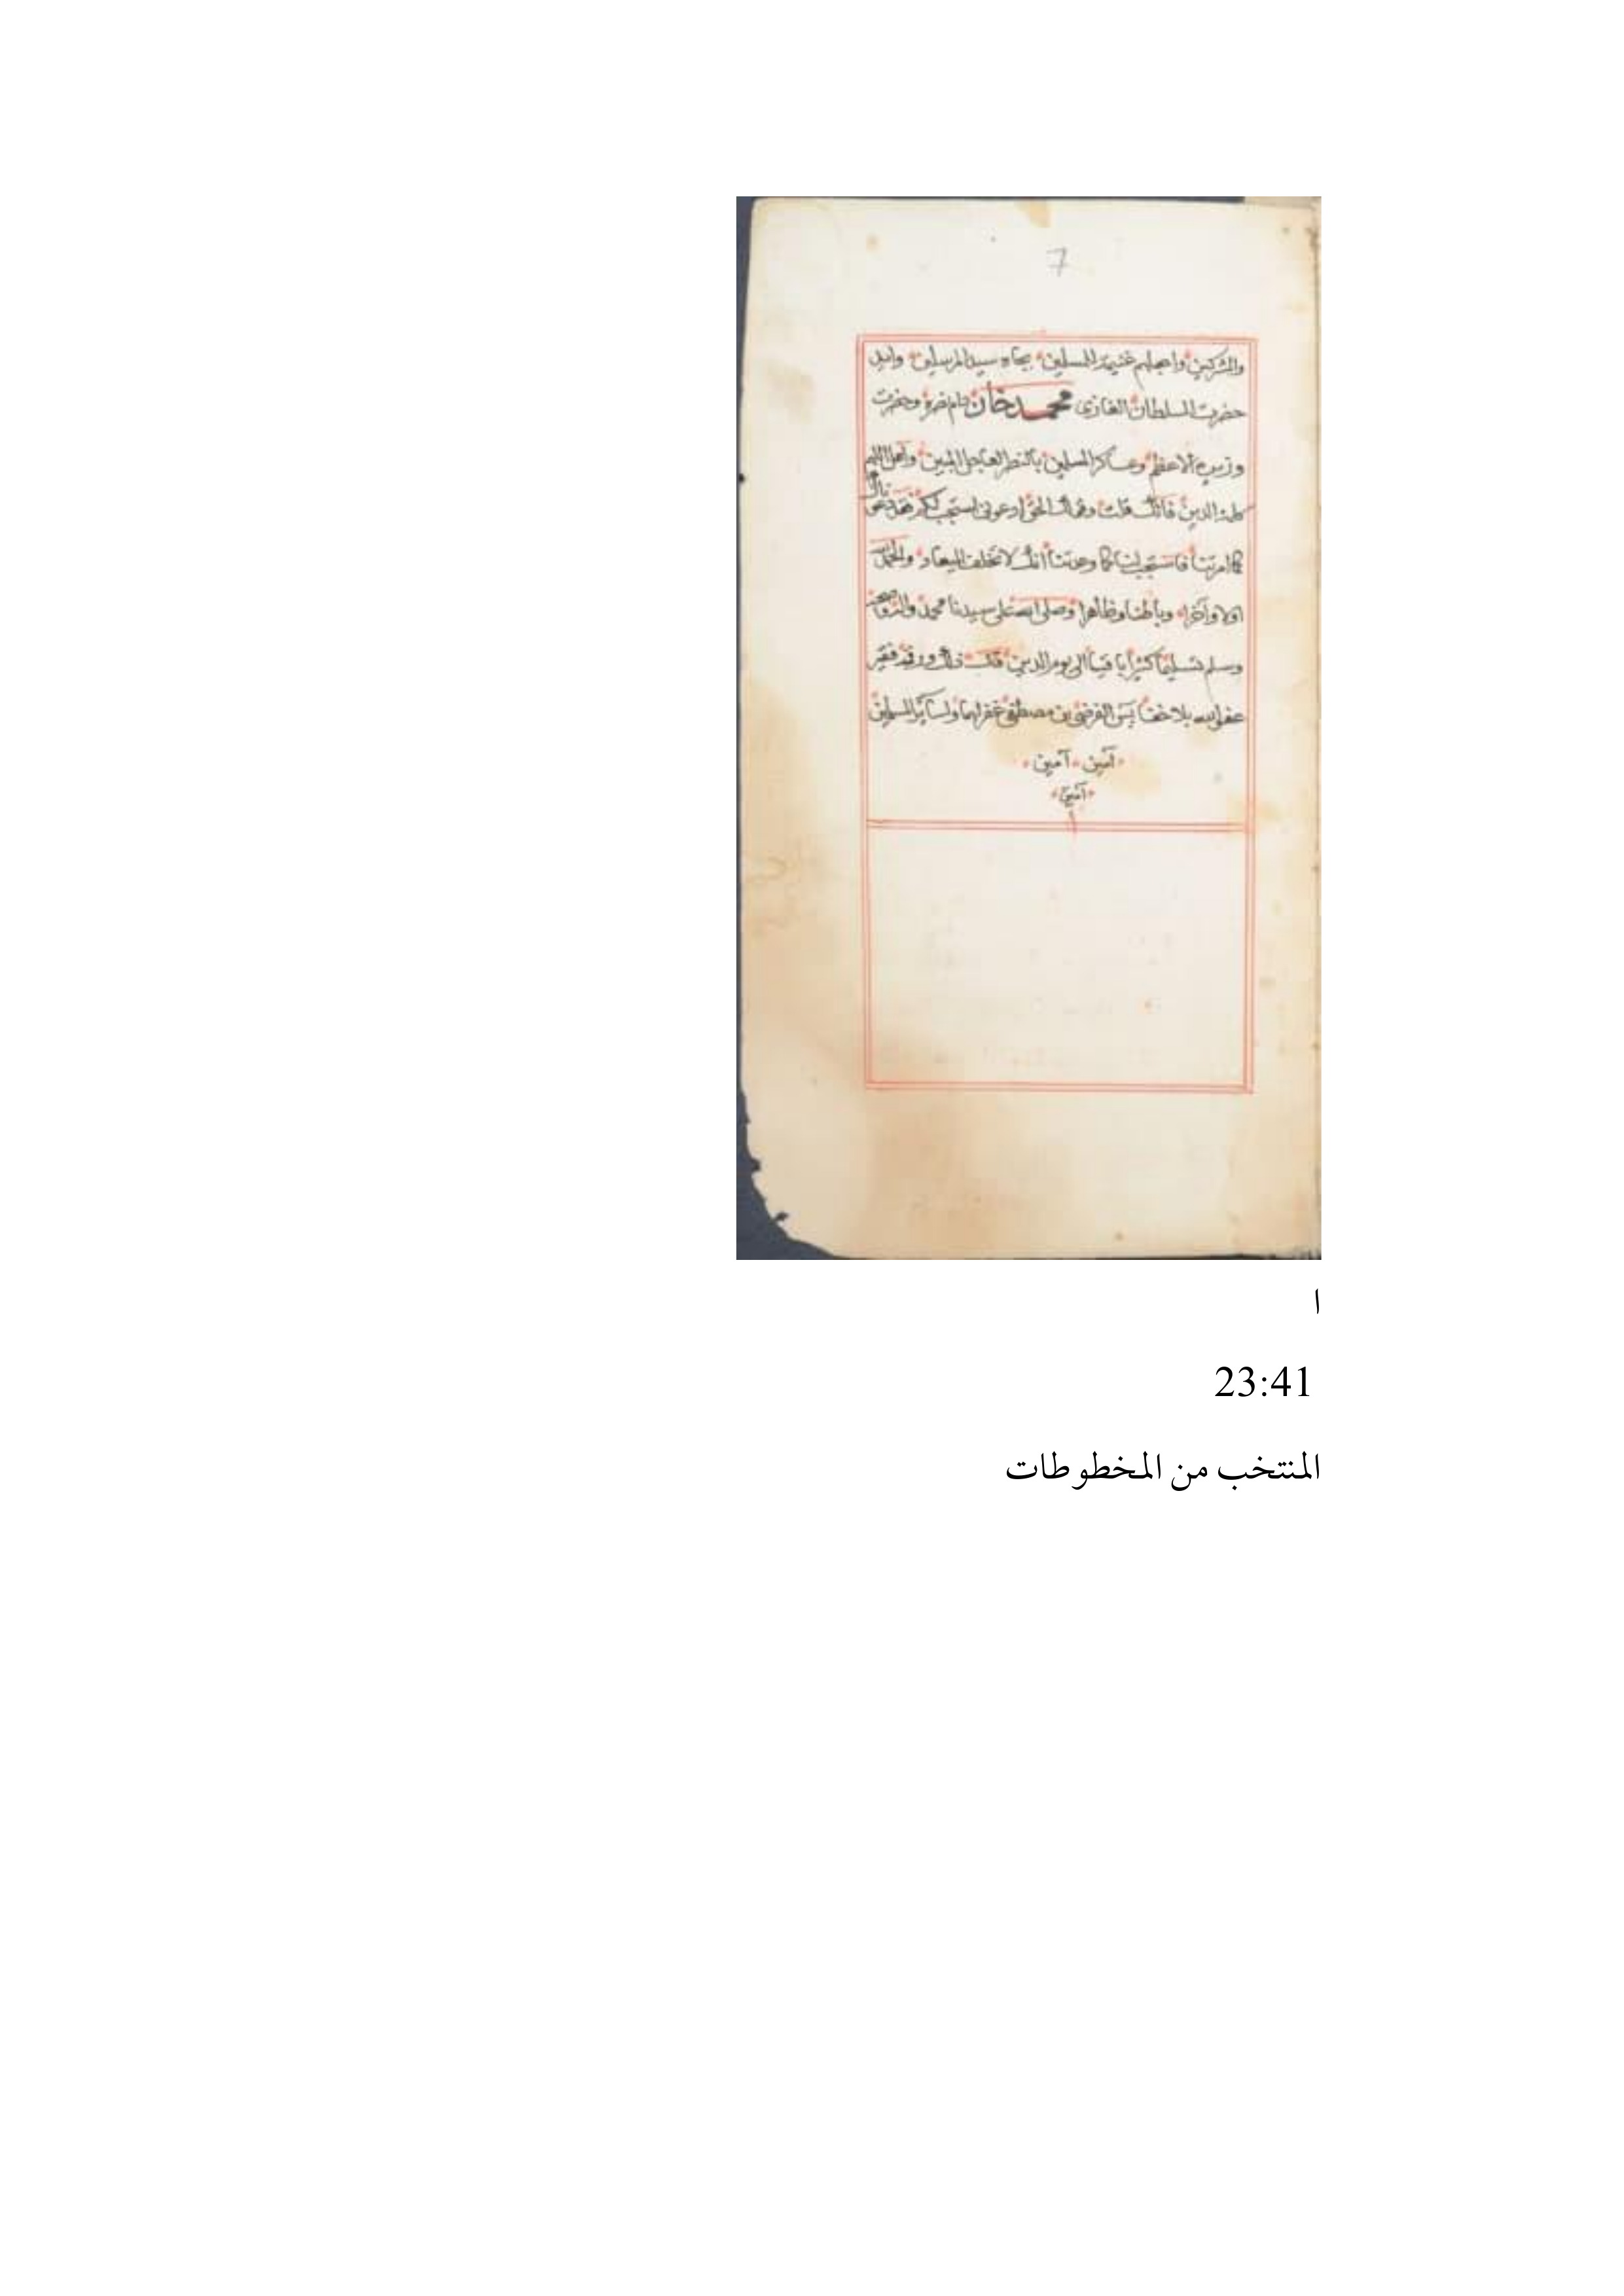 7
والمشركين واجعلهم غنيمة للمسلمين بجاه سيد المرسلين وايد
حضرت السلطان الغازى محمد خان دام نصره وحضرت
وزيره الاعظم وعساكر المسلمين بالنصر العاجل المبين واهلك اللهم
الدين فانك قلت وقولك الحق ادعونى استجب لكم فقد دعوناك
كما امرتنا فاستجب لنا كما وعدتنا انك لا تخلف الميعاد والحمد لله
اولا وآخرا وباطنا وظاهرا وصلى الله على سيدنا محمد وآله وصحبه
وسلم تسليما كثيرا باقيا الى يوم الدين ذلك ورقمه فقير
عفو الله بلا خفا يس الفرضى بن مصطفى غفر لهما ولسائر المسلمين
آمين آمين
آمين
ا
23:41
المنتخب من المخطوطات